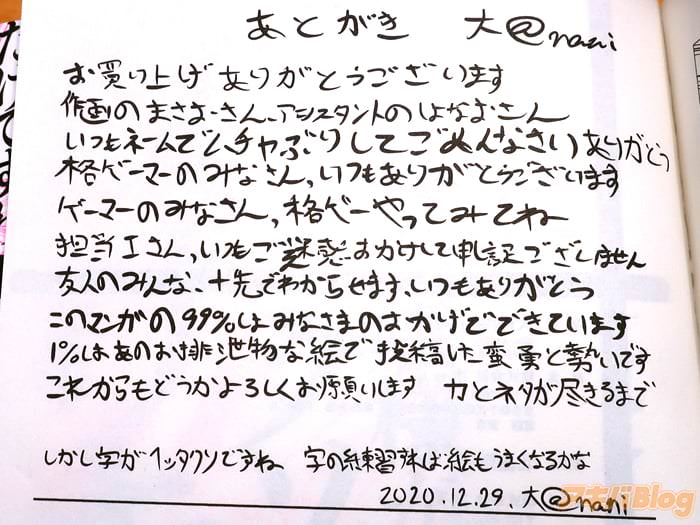 あとがき 大@nani
お買い上げありがとうございます
作画のまさおーさん、アシスタントのはなおさん
いつもネームでムチャぶりしてごめんなさいありがとう
格ゲーマーのみなさん、いつもありがとうございます
ゲーマーのみなさん、格ゲーやってみてね
担当Iさん、いつもご迷惑おかけして申訳ございません
友人のみんな、十先でわからせます、いつもありがとう
このマンガの99%はみなさまのおかげでできています
1%はあのお排泄物な絵で投稿した蛮勇と勢いです
これからもどうかよろしくお願いします 力とネタが尽きるまで
しかし字がヘッタクソですね 字の練習すれば絵もうまくなるかな
2020.12.29. 大@nani
アキバBlog